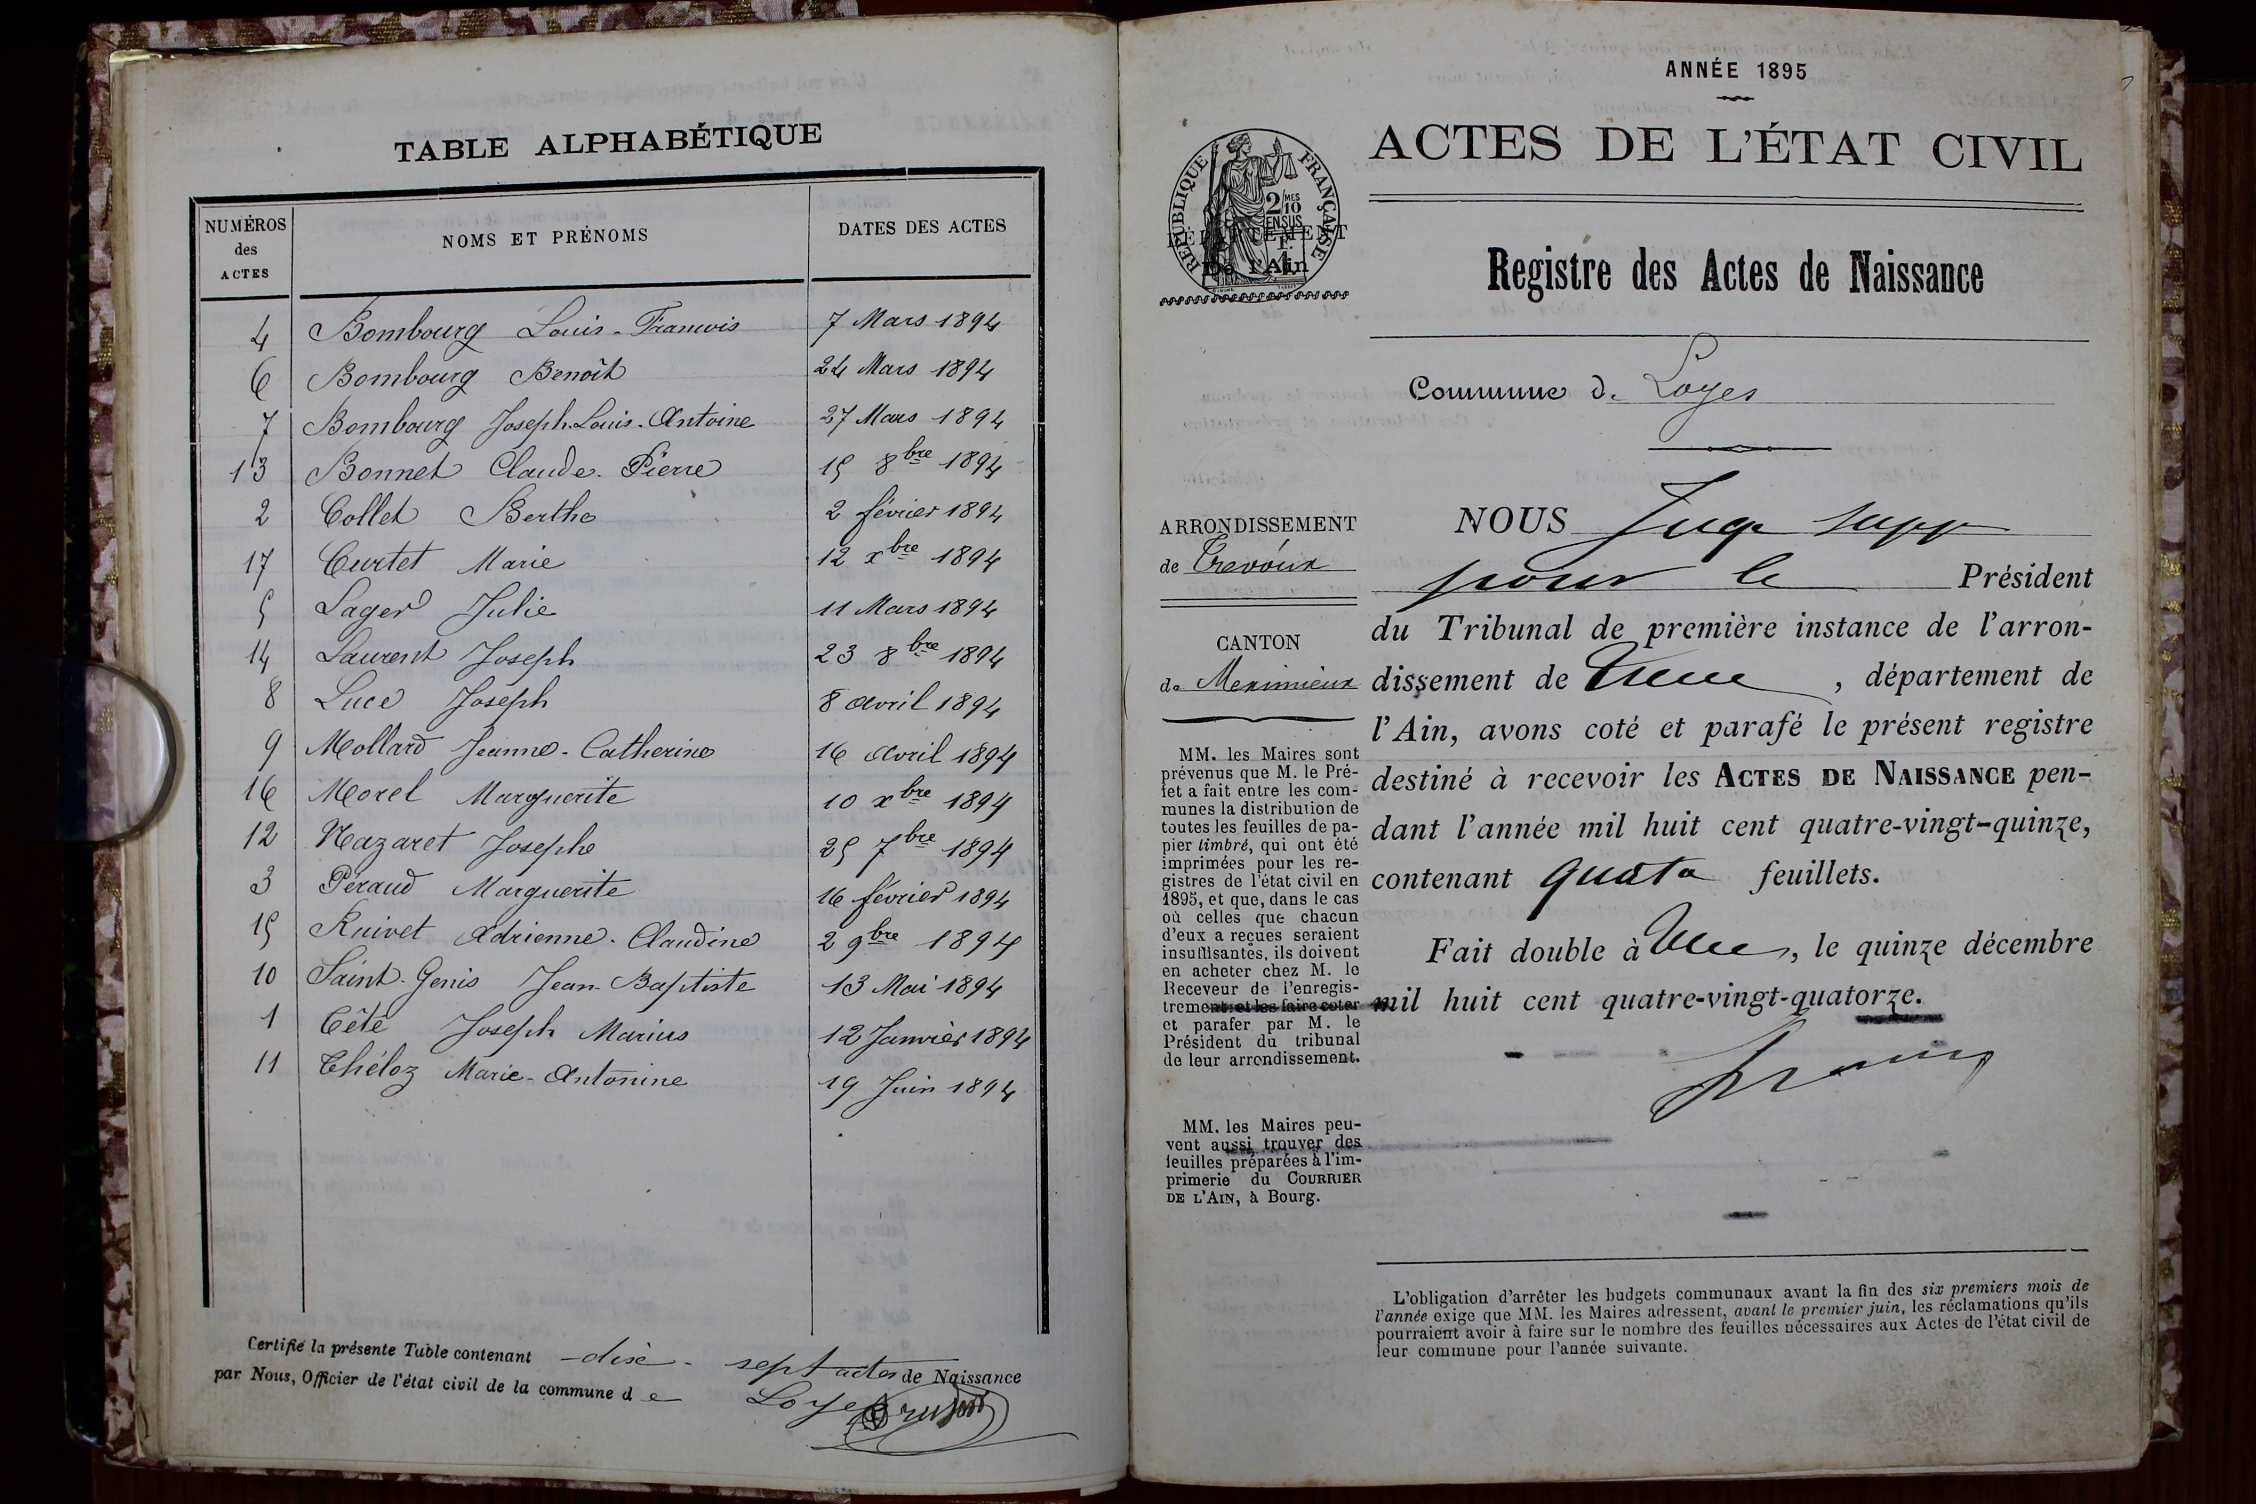 TABLE ALPHABÉTIQUE
NUMÉROS des ACTES
NOMS ET PRÉNOMS
DATES DES ACTES
4 Bombourg Louis-Francois 7 Mars 1894
6 Bombourg Benoît 24 Mars 1894
7 Bombourg Joseph-Louis-Antoine 27 Mars 1894
13 Bonnet Claude-Pierre 15 8bre 1894
2 Collet Berthe 2 février 1894
17 Curtet Marie 12 xbre 1894
5 Lager Julie 11 Mars 1894
14 Laurent Joseph 23 8bre 1894
8 Luce Joseph 8 avril 1894
9 Mollard Jeanne-Catherine 16 avril 1894
16 Morel Marguerite 10 xbre 1894
12 Nazaret Josephe 25 7bre 1894
3 Péraud Marguerite 16 février 1894
15 Ruivet Adrienne-Claudine 2 9bre 1894
10 Saint-Genis Jean-Baptiste 13 Mai 1894
1 Cêté Joseph Marius 12 Janvier 1894
11 Théloz Marie-Antonine 19 Juin 1894
Certifié la présente Table contenant dix-sept actes de Naissance
par Nous, Officier de l'état civil de la commune de Loyes
ANNÉE 1895
ACTES DE L'ÉTAT CIVIL
RÉPUBLIQUE FRANÇAISE
2/10 MES
EN SUS
DÉPARTEMENT
De l'Ain
Registre des Actes de Naissance
Commune de Loyes
ARRONDISSEMENT
de Trevoux
CANTON
de Meximieux
MM. les Maires sont
prévenus que M. le Pré-
fet a fait entre les com-
munes la distribution de
toutes les feuilles de pa-
pier timbré, qui ont été
imprimées pour les re-
gistres de l'état civil en
1895, et que, dans le cas
où celles que chacun
d'eux a reçues seraient
insuffisantes, ils doivent
en acheter chez M. le
Receveur de l'enregis-
trement et les faire coter
et parafer par M. le
Président du tribunal
de leur arrondissement.
MM. les Maires peu-
vent aussi trouver des
feuilles préparées à l'im-
primerie du COURRIER
DE L'AIN, à Bourg.
NOUS Juge supp
pour le Président
du Tribunal de première instance de l'arron-
dissement de , département de
l'Ain, avons coté et parafé le présent registre
destiné à recevoir les ACTES DE NAISSANCE pen-
dant l'année mil huit cent quatre-vingt-quinze,
contenant feuillets.
Fait double à , le quinze décembre
mil huit cent quatre-vingt-quatorze.
L'obligation d'arrêter les budgets communaux avant la fin des six premiers mois de
l'année exige que MM. les Maires adressent, avant le premier juin, les réclamations qu'ils
pourraient avoir à faire sur le nombre des feuilles nécessaires aux Actes de l'état civil de
leur commune pour l'année suivante.